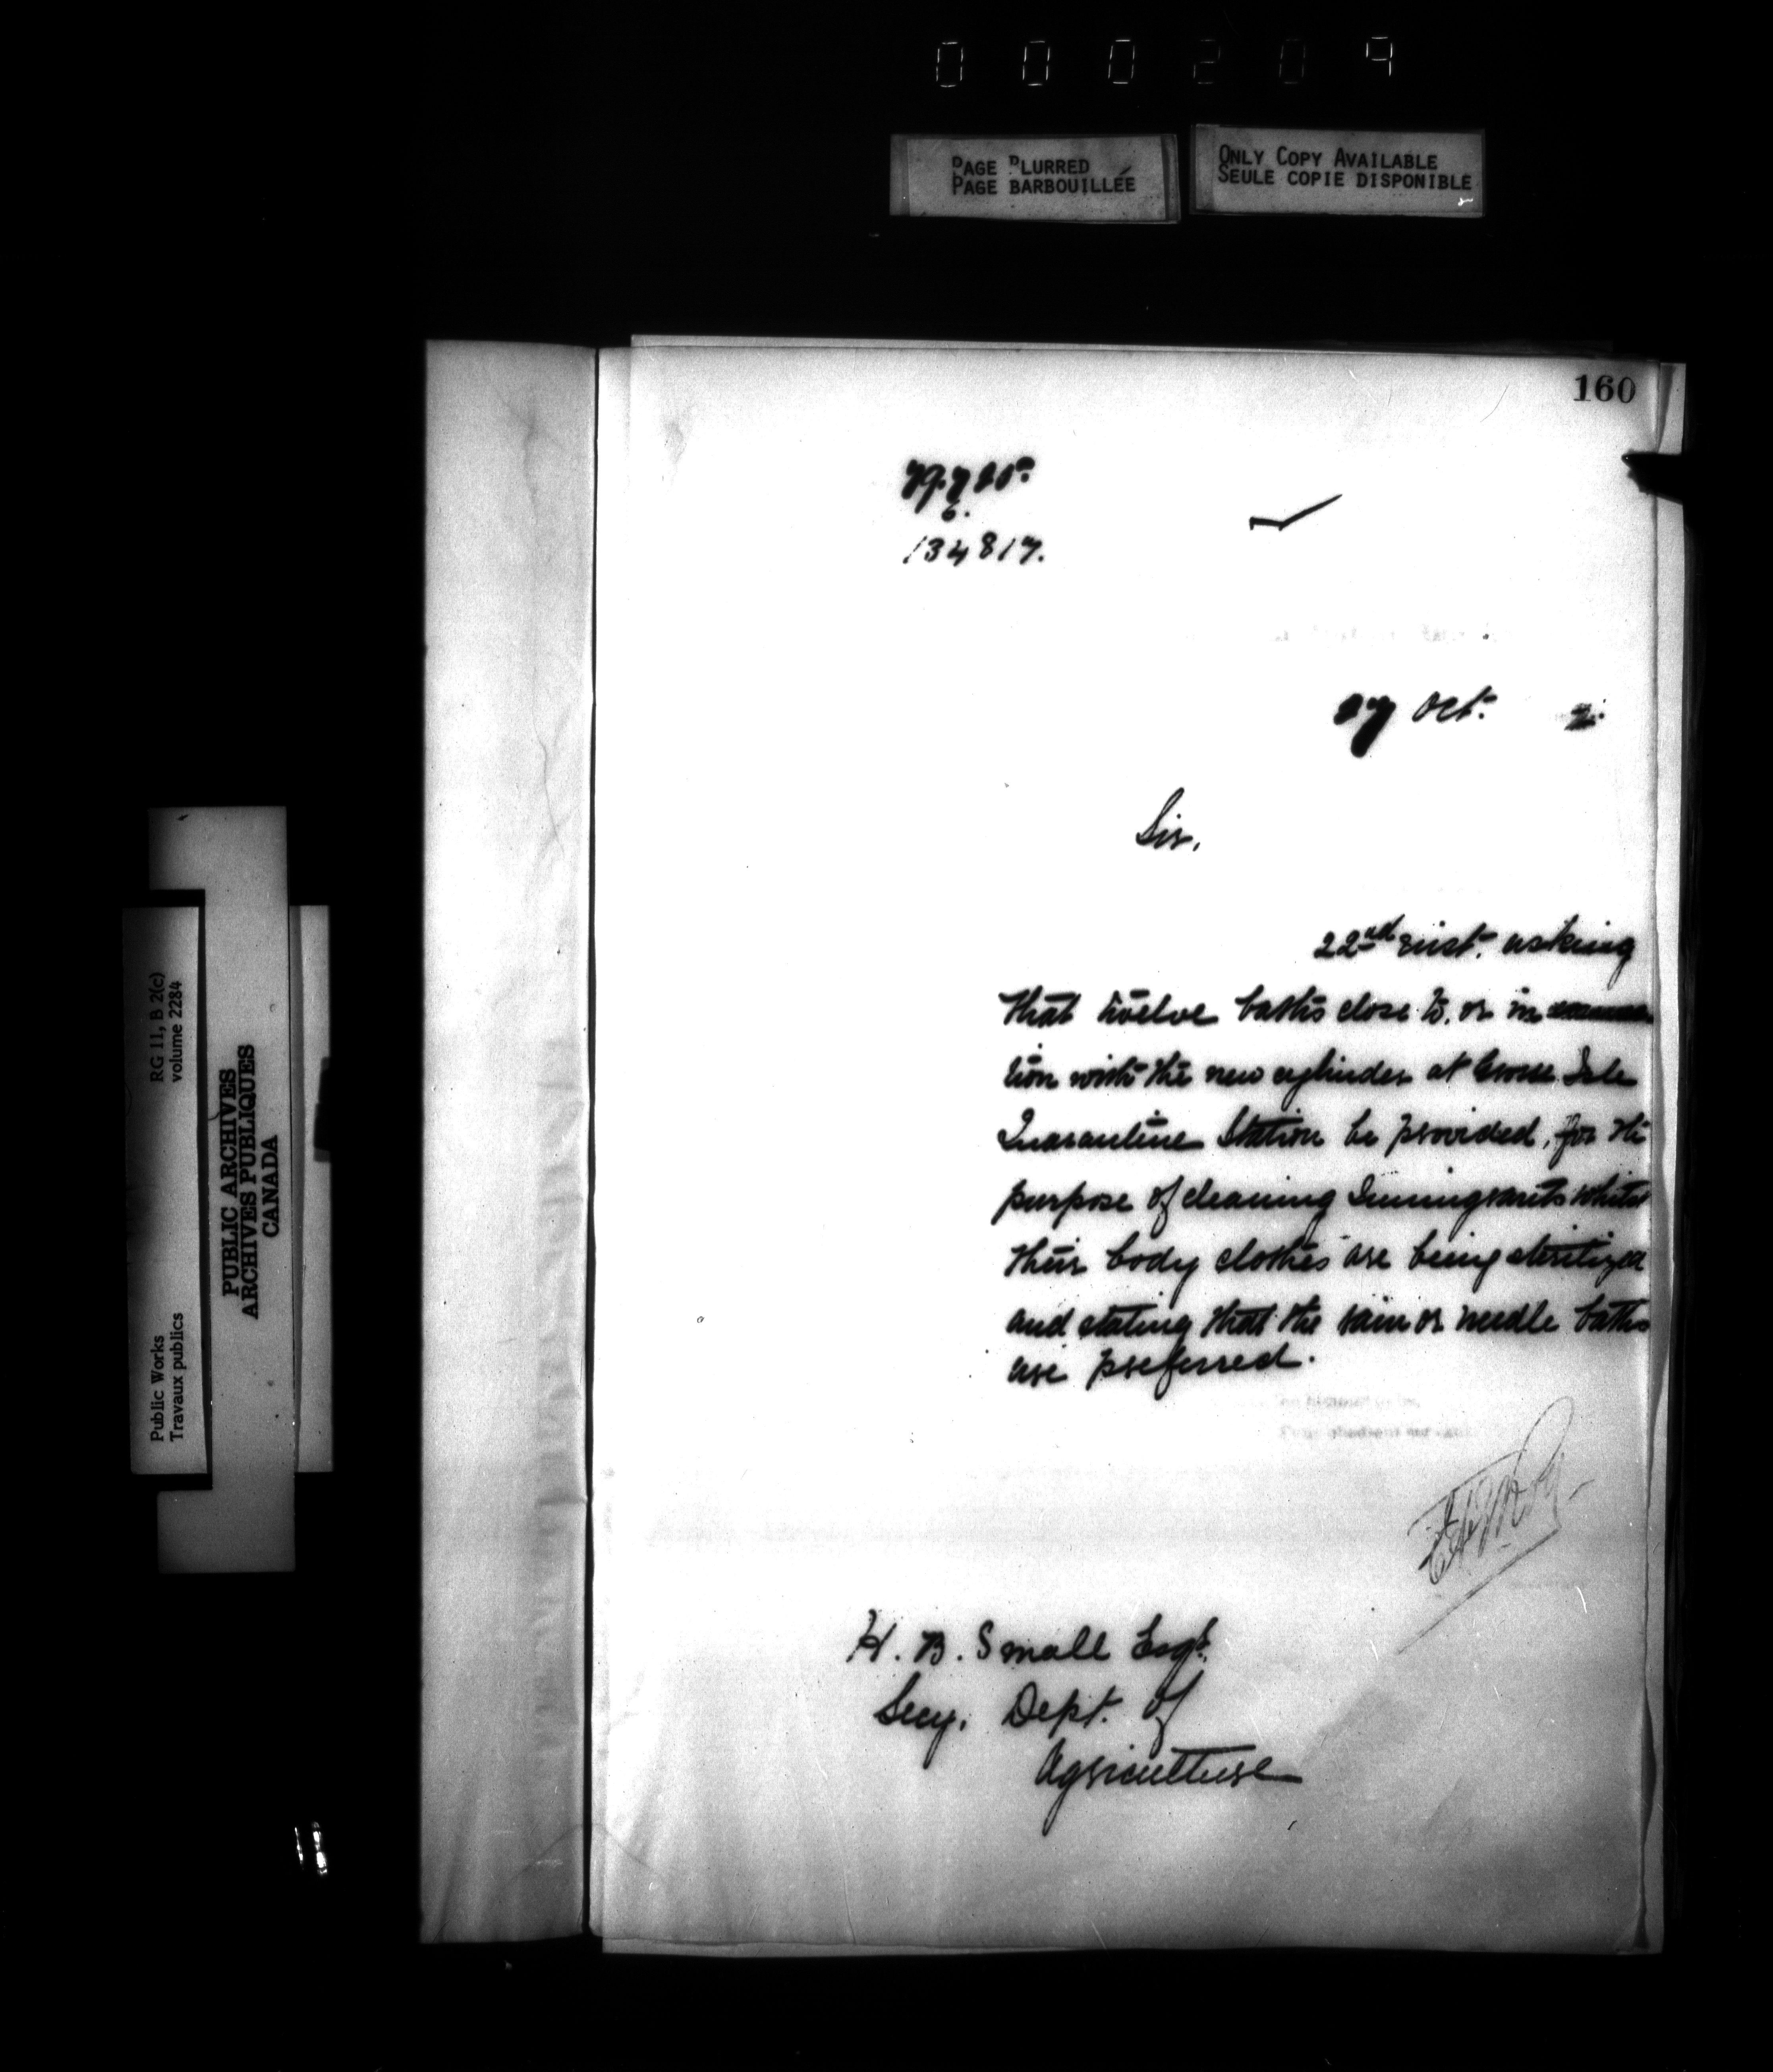 000209
PAGE BLURRED
PAGE BARBOUILLÉE
ONLY COPY AVAILABLE
SEULE COPIE DISPONIBLE
160
134817.
27 Oct. 2.
Sir,
22nd inst. asking
that twelve baths close to, or in
tion with the new cylinder at Grosse Isle
Quarantine Station be provided, for the
purpose of cleaning Immigrants whilst
their body clothes are being sterilized
and stating that the rain or needle baths
are preferred.
Your obedient servant
H. B. Small Esqr.
Secy. Dept. of
Agriculture
Public Works
Travaux publics
RG 11, B 2(c)
volume 2284
PUBLIC ARCHIVES
ARCHIVES PUBLIQUES
CANADA